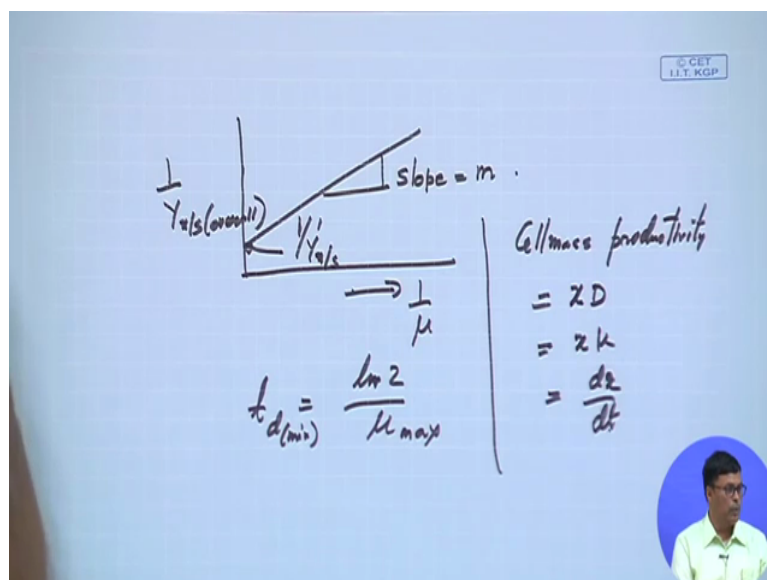 © CET
I.I.T. KGP
1
Y x/s (overall)
slope = m .
1/Y' x/s
→ 1
μ
t d(min) = ln 2
μ max
Cellmass productivity
= x D
= x μ
= dx
dt